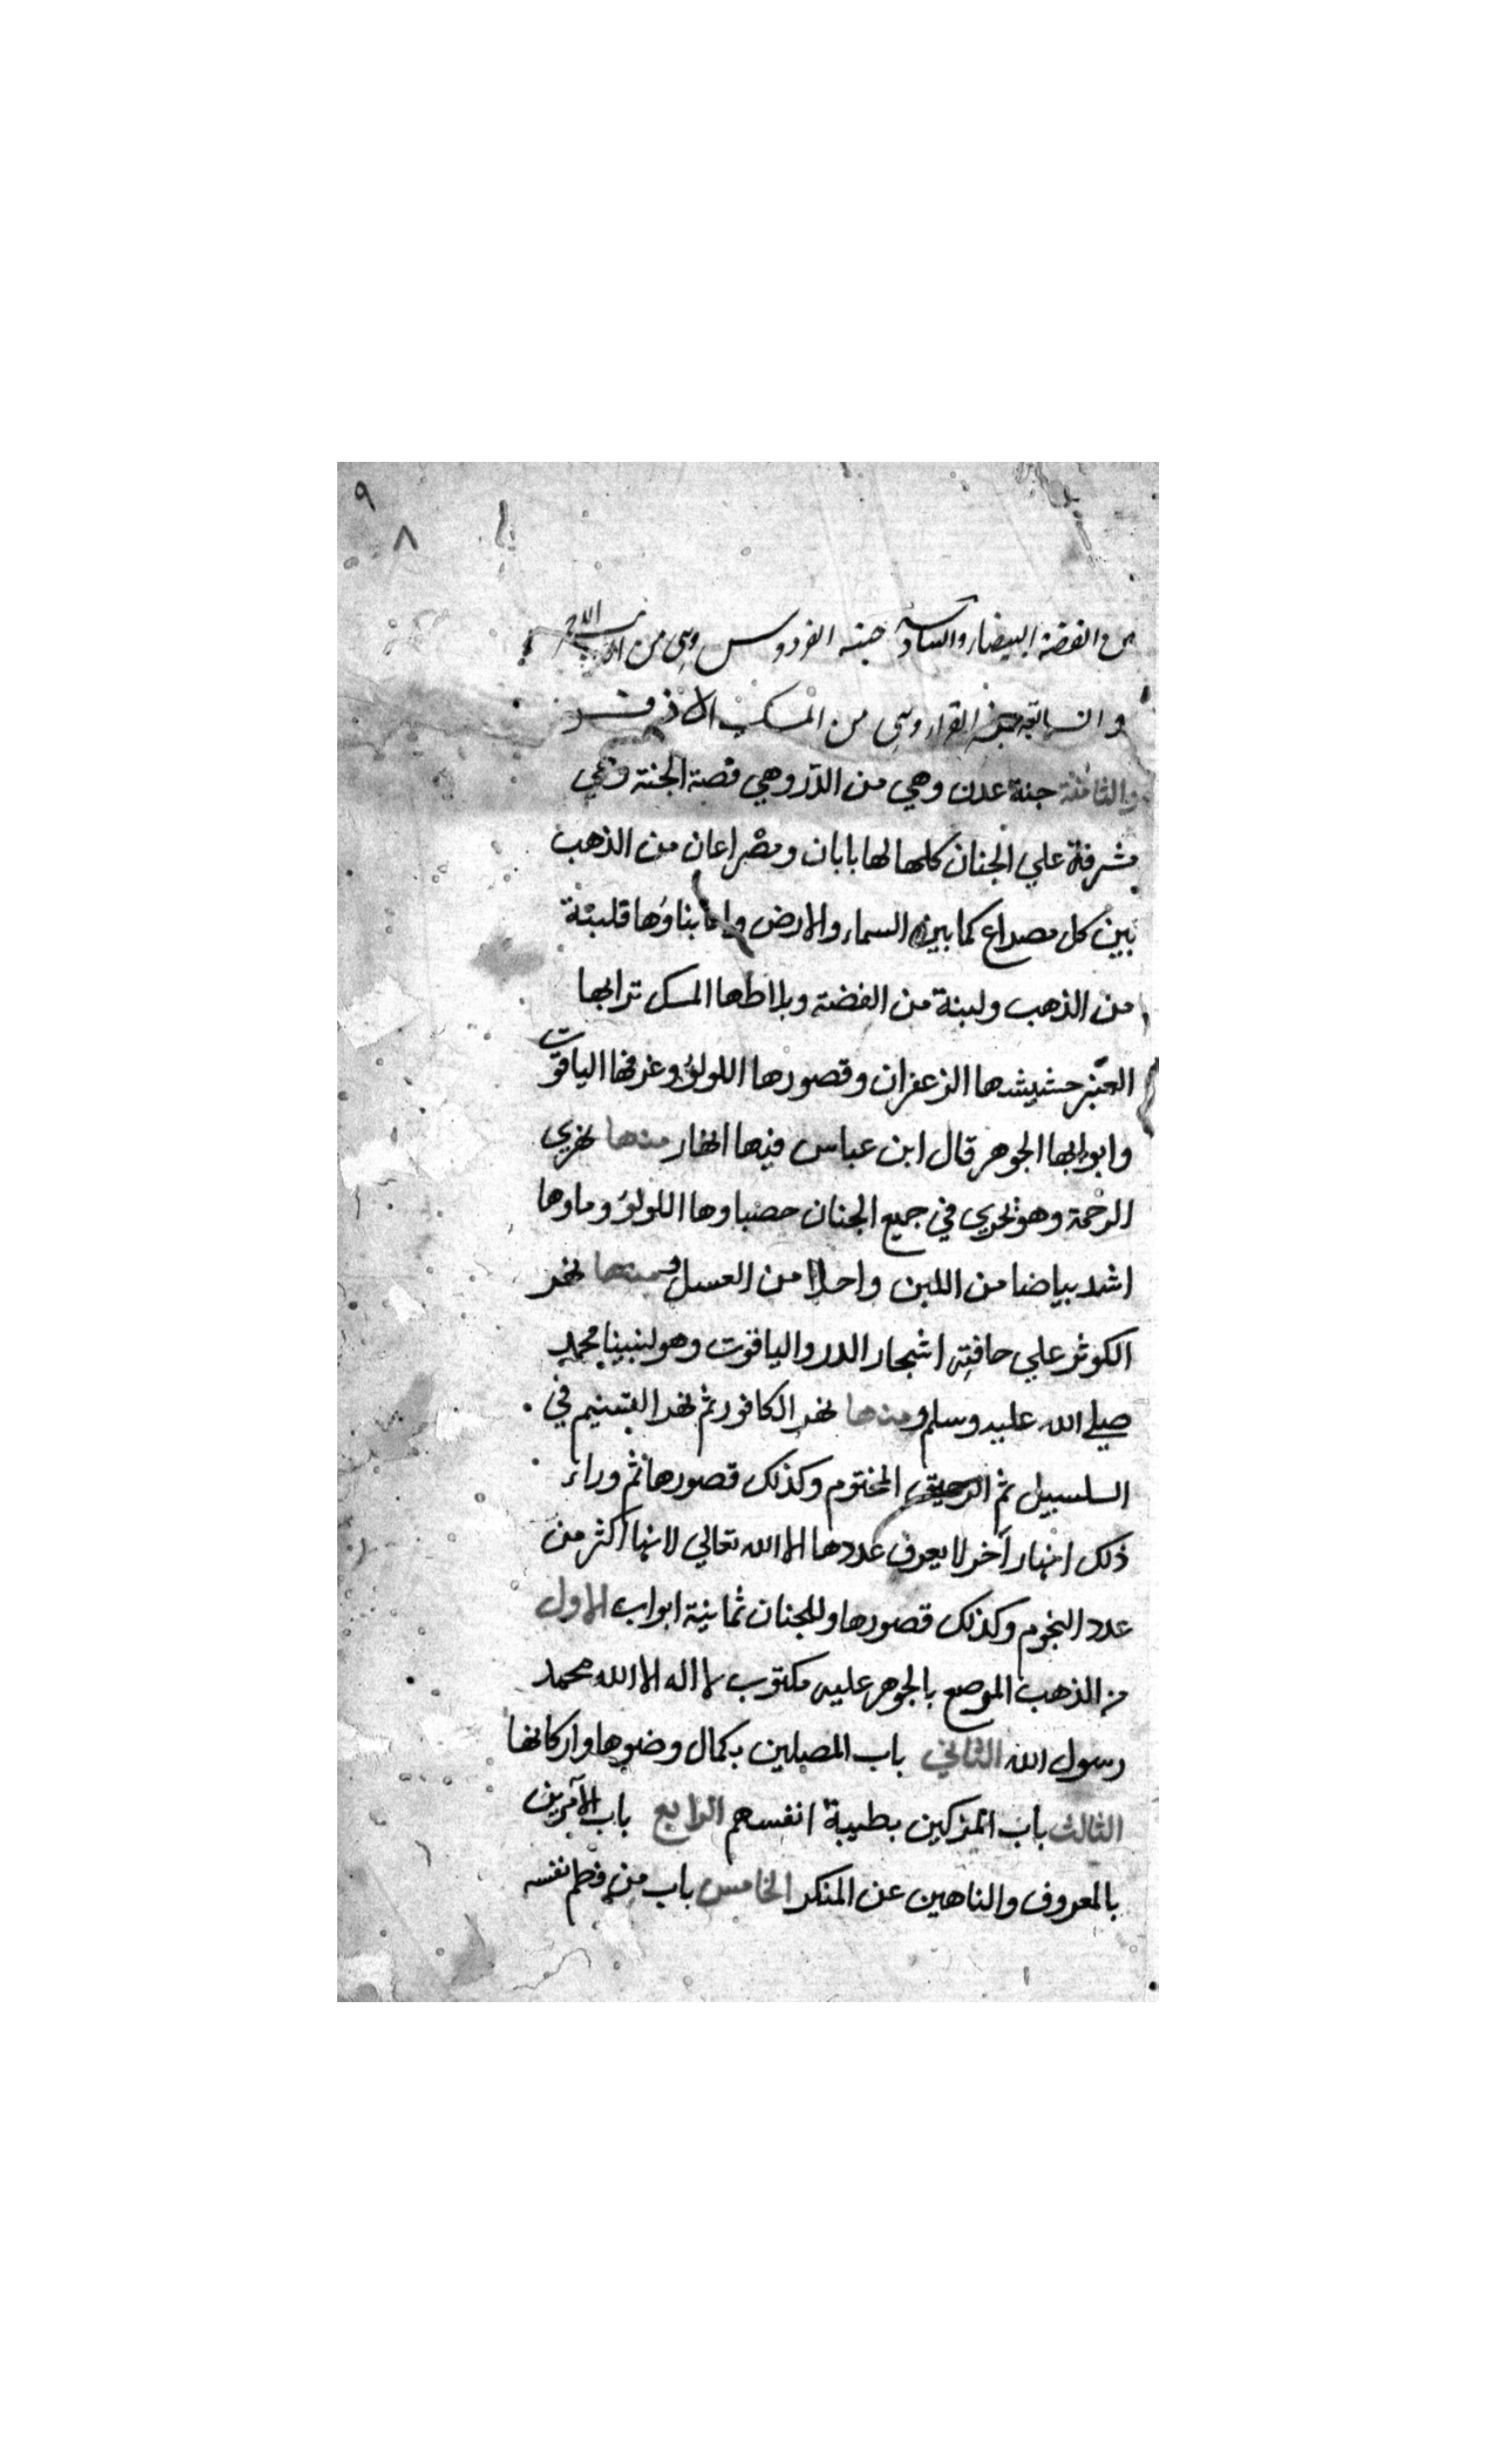 ٩
٨
من الفضة البيضاء والسادسة جنة الفردوس وهي من الذهب الاحمر
والسابعة جنة القرار وهي من المسك الاذفر
والثامنة جنة عدن وهي من الدر وهي قصبة الجنة وهي
مشرفة علي الجنان كلها لها بابان ومصراعان من الذهب
بين كل مصراع كما بين السماء والارض واما بناؤها فلبنة
من الذهب ولبنة من الفضة وبلاطها المسك ترابها
العنبر حشيشها الزعفران وقصورها اللولؤ وغرفها الياقوت
وابوابها الجوهر قال ابن عباس فيها انهار منها نهر
الرحمة وهو يجري في جميع الجنان حصباوها اللولؤ وماوها
اشد بياضا من اللبن واحلا من العسل ومنها نهر
الكوثر علي حافته اشجار الدر والياقوت وهو لنبينا محمد
صلي الله عليه وسلم ومنها نهر الكافور ثم نهر التسنيم في
السلسبيل ثم الرحيق المختوم وكذلك قصورها ثم وراء
ذلك انهار آخر لا يعرف عددها الا الله تعالي لانها اكثر من
عدد النجوم وكذلك قصورها وللجنان ثمانية ابواب الاول
من الذهب الموصع بالجوهر عليه مكتوب لا اله الا الله محمد
رسول الله الثاني باب المصلين بكمال وضوها واركانها
الثالث باب المزكين بطيبة انفسهم الرابع باب الآمرين
بالمعروف والناهين عن المنكر الخامس باب من فطم نفسه